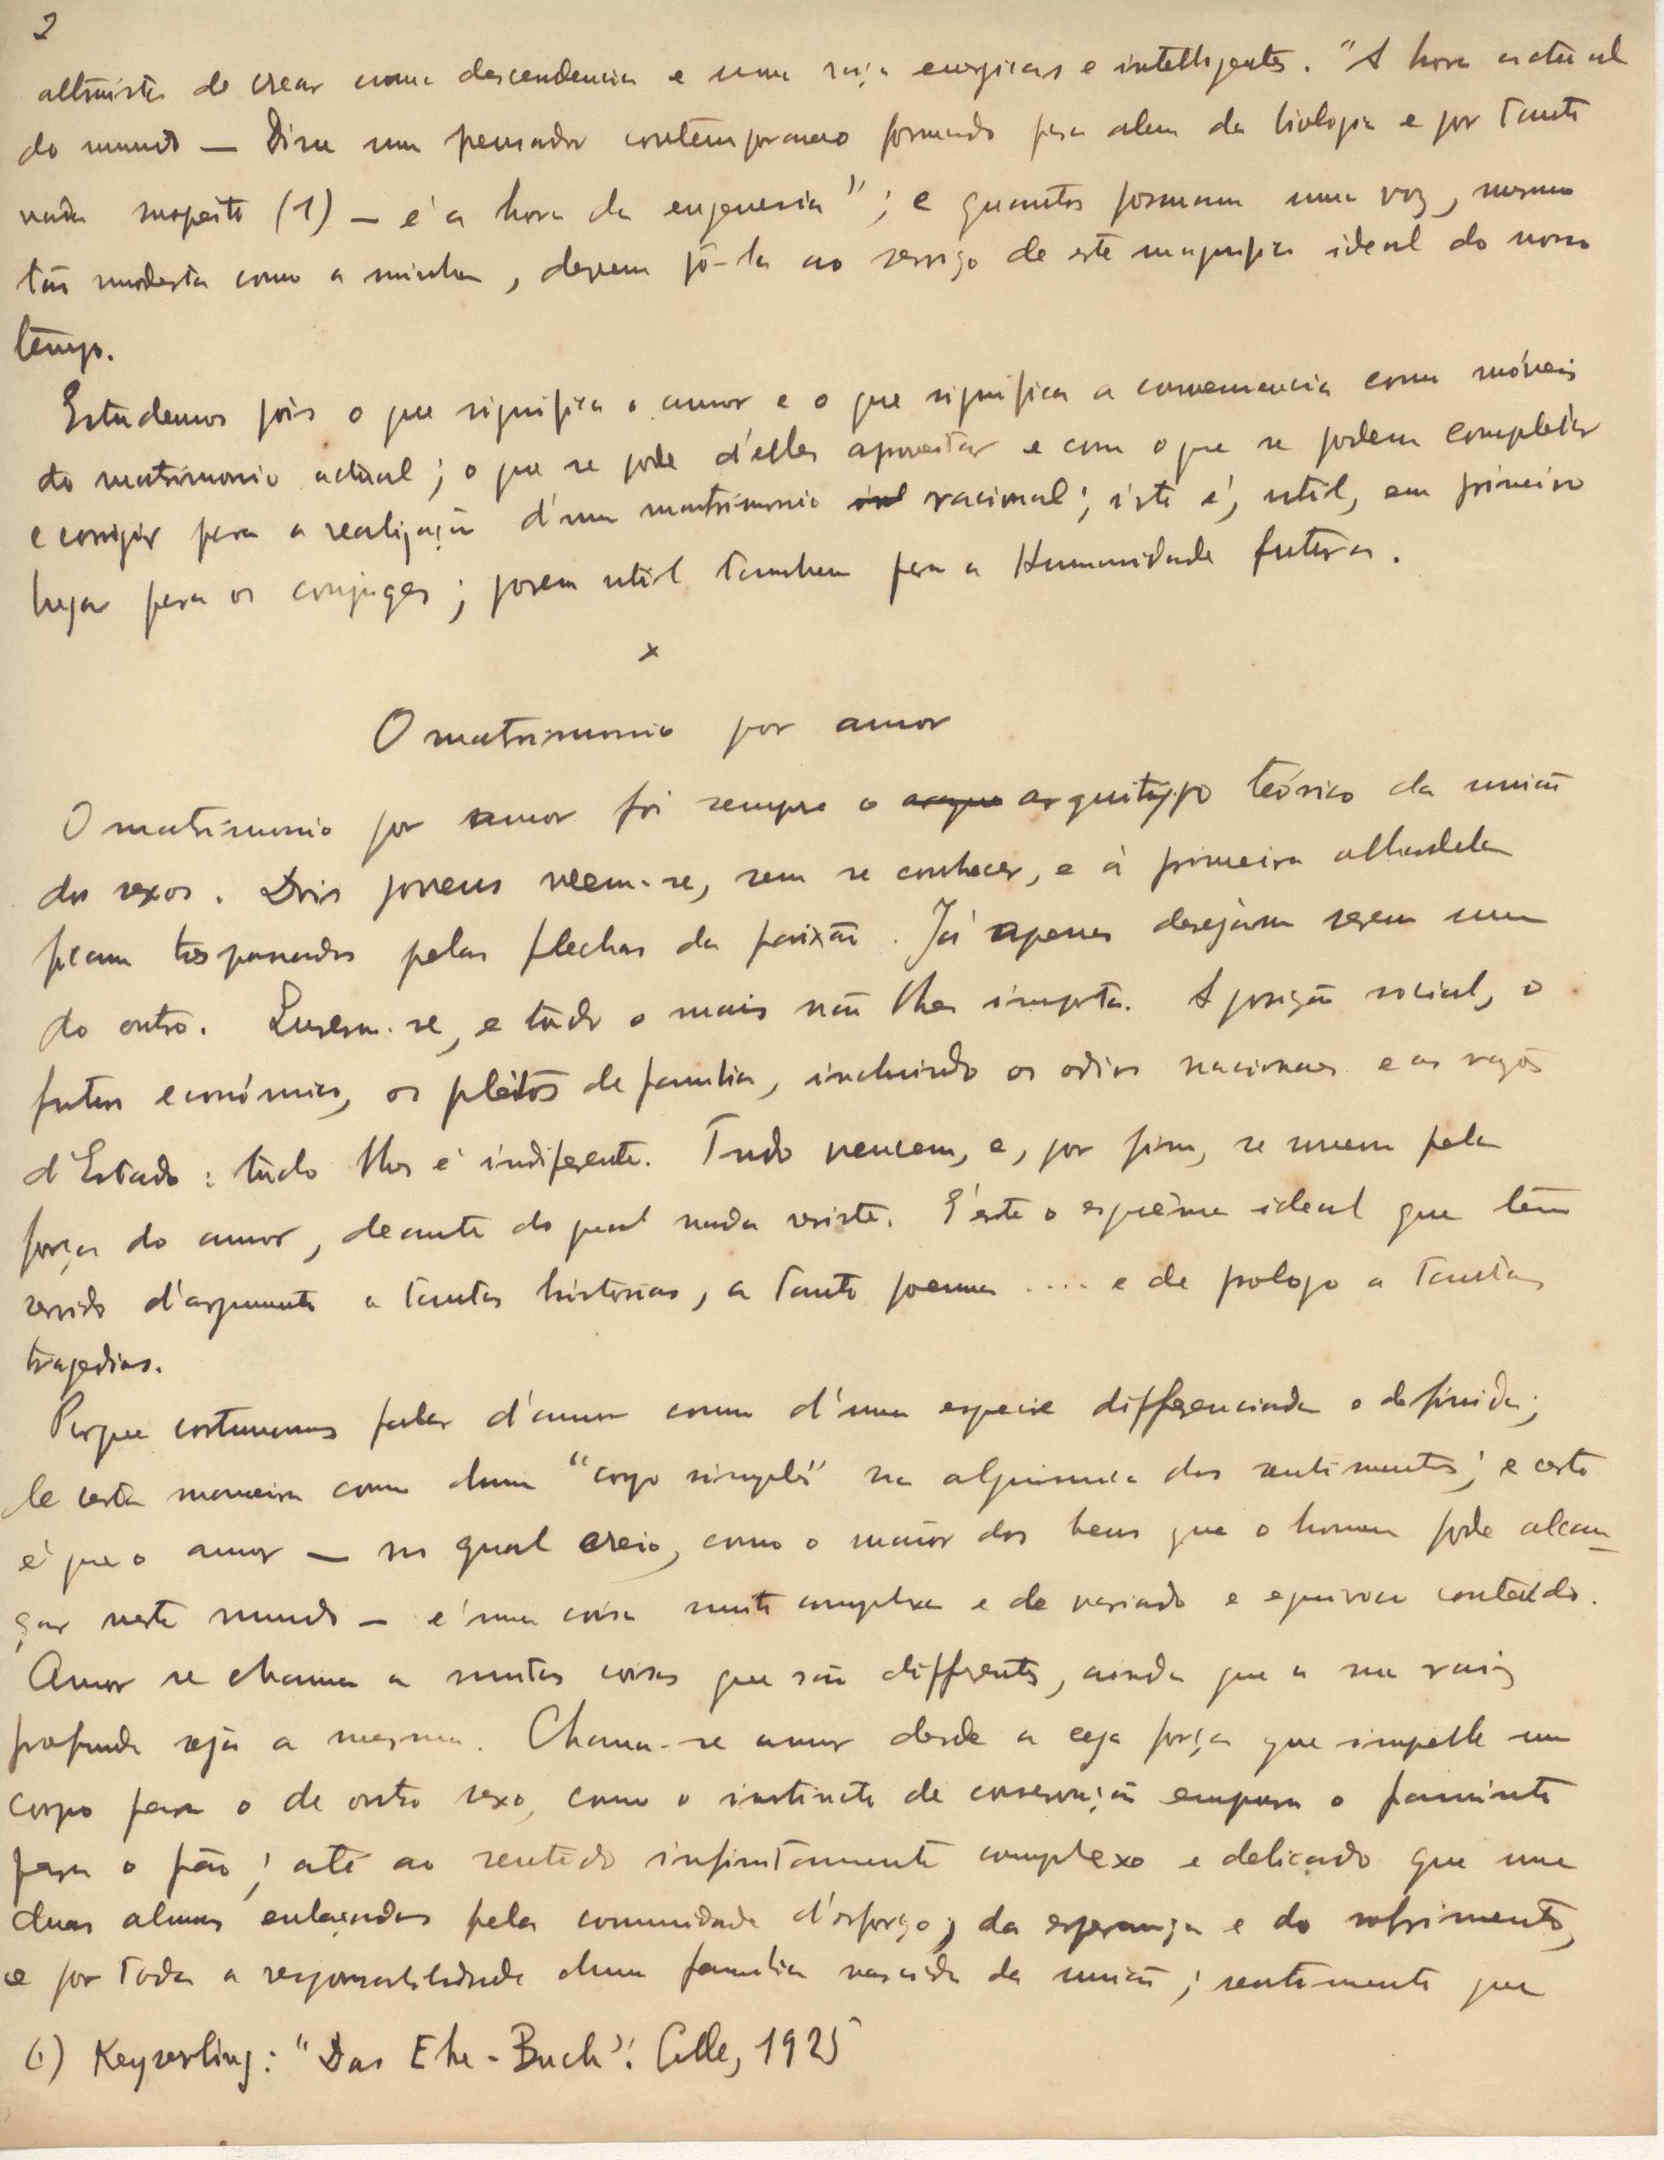 2
altruista de crear uma descendencia e uma raça energicas e intelligentes. "A hora actual
do mundo — Disse um pensador contemporaneo formado para alem da biologia e por tanto
nada suspeito (1) — é a hora da eugenesia"; e quantos formam uma voz, mesmo
tão modesta como a minha, devem pô-la ao serviço de este magnifico ideal do nosso
tempo.
Estudemos pois o que significa o amor e o que significa a conveniencia como móveis
do matrimonio actual; o que se pode d'elles aproveitar e com o que se podem completar
e corrigir para a realização d'um matrimonio racional; isto é, util, em primeiro
lugar para os conjuges; porem util tambem para a Humanidade futura.
x
O matrimonio por amor
O matrimonio por amor foi sempre o arquitypo teórico da união
dos sexos. Dois jovens veem-se, sem se conhecer, e á primeira olhadela
ficam trespassados pelas flechas da paixão. Já apenas desejam serem um
do outro. Querem-se, e tudo o mais não lhes importa. A posição social, o
futuro económico, os pleitos de familia, incluindo os odios nacionaes e as razões
d'Estado: tudo lhes é indiferente. Tudo vencem, e, por fim, se unem pela
força do amor, deante do qual nada resiste. É este o esquema ideal que tem
servido d'argumento a tantas historias, a tanto poema .... e de prologo a tantas
tragedias.
Porque costumamos falar d'amor como d'uma especie differenciada e definida;
de certa maneira como dum "corpo simples" na alquimia dos sentimentos; e certo
é que o amor — no qual creio, como o maior dos bens que o homem pode alcan-
çar neste mundo — é uma coisa muito complexa e de variado e equivoco conteúdo.
Amor se chama a muitas coisas que são differentes, ainda que a sua raiz
profunda seja a mesma. Chama-se amor desde a cega força que impelle um
corpo para o de outro sexo, como o instincto de conservação empurra o faminto
para o pão; até ao sentido infinitamente complexo e delicado que une
duas almas enlaçadas pela comunidade d'esforço, da esperança e do sofrimento,
e por toda a responsabilidade duma familia nascida da união; sentimento que
(1) Keyserling: "Das Ehe-Buch": Celle, 1925